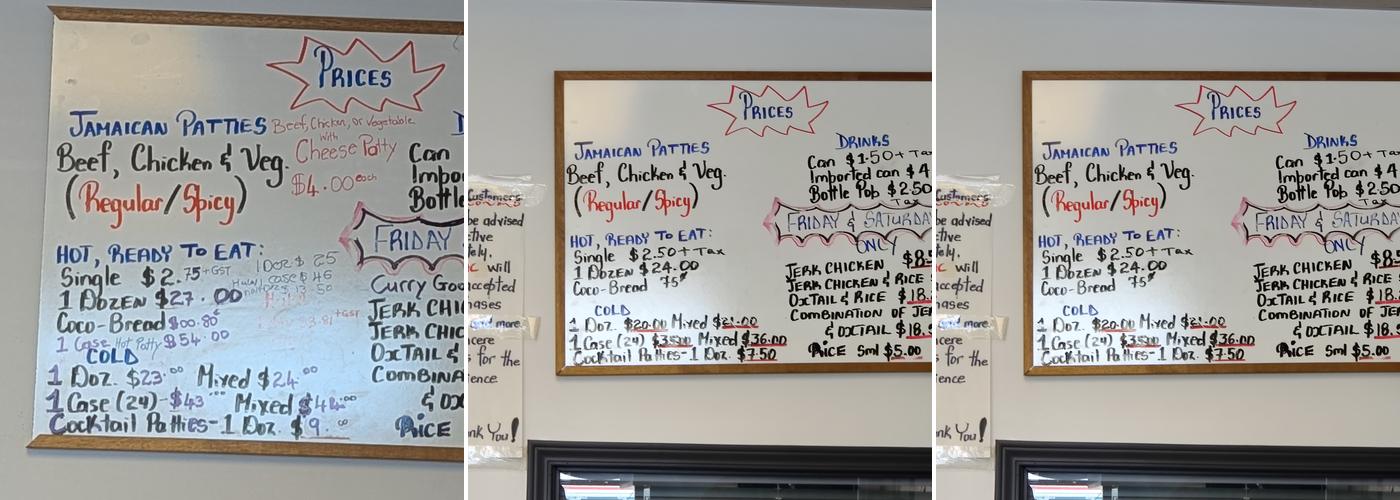 PRICES
JAMAICAN PATTIES
Beef, Chicken, or Vegetable
with
Cheese Patty
$4.00 each
Beef, Chicken & Veg.
(Regular/Spicy)
HOT, READY TO EAT:
Single $2.75+GST
1 DOZEN $27.00
Coco-Bread $00.80¢
1 Case Hot Patty $54.00
COLD
1 Doz. $23.00 Mixed $24.00
1 Case (24)-$43 Mixed $44.00
Cocktail Patties-1 Doz. $9.
1 Doz $ 25
Can
Impo
Bottle
FRIDAY
Curry Goa
JERK CHI
JERK CHIC
OXTAIL &
COMBINA
& OX
RICE
PRICES
JAMAICAN PATTIES
Beef, Chicken & Veg.
(Regular/Spicy)
HOT, READY TO EAT:
Single $2.50+Tax
1 DOZEN $24.00
Coco-Bread 75¢
COLD
1 Doz. $20.00 Mixed $21.00
1 Case (24) $35.00 Mixed $36.00
Cocktail Patties-1 Doz. $7.50
DRINKS
Can $1.50+Tax
Imported can $4
Bottle Pop $2.50
Tax
FRIDAY & SATURDA
ONLY
JERK CHICKEN $8.5
JERK CHICKEN & RICE
OXTAIL & RICE $18.
COMBINATION OF JER
& OXTAIL $18.9
RICE Sml $5.00
Customers
be advised
tive
tely,
will
accepted
hases
and more
cere
s for the
ience
nk You!
PRICES
JAMAICAN PATTIES
Beef, Chicken & Veg.
(Regular/Spicy)
HOT, READY TO EAT:
Single $2.50+Tax
1 DOZEN $24.00
Coco-Bread 75¢
COLD
1 Doz. $20.00 Mixed $21.00
1 Case (24) $35.00 Mixed $36.00
Cocktail Patties-1 Doz. $7.50
DRINKS
Can $1.50+Tax
Imported can $4
Bottle Pop $2.50
Tax
FRIDAY & SATURDA
ONLY
JERK CHICKEN $8.5
JERK CHICKEN & RICE
OXTAIL & RICE $18.
COMBINATION OF JER
& OXTAIL $18.9
RICE Sml $5.00
Customers
be advised
tive
tely,
will
accepted
hases
and more
cere
s for the
ience
nk You!